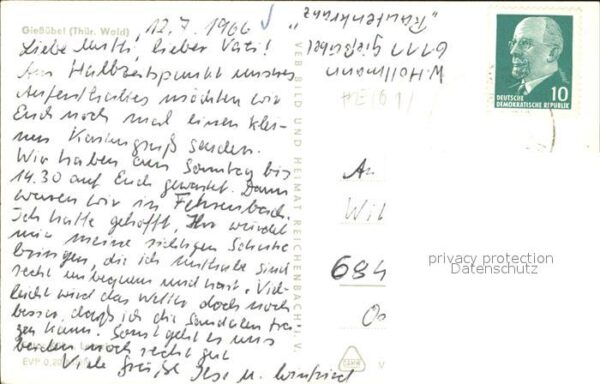 Gießübel (Thür. Wald)
12.7.1966
Liebe Mutti, lieber Vati!
Am Halbzeitpunkt unseres
Aufenthaltes möchten wir
Euch noch mal einen klei-
nen Kartengruß senden.
Wir haben am Sonntag bis
14.30 auf Euch gewartet. Dann
waren wir in Fehrenbach.
Ich hatte gehofft, Ihr würdet
mir meine richtigen Schuhe
bringen, die ich mithabe sind
recht unbequem und hart. Viel-
leicht wird das Wetter doch noch
besser, daß ich die Sandalen tra-
gen kann. Sonst geht es uns
beiden noch recht gut
Viele Grüße Ilse u. Winfried
EVP 0,20
VEB BILD UND HEIMAT REICHENBACH I. V.
W. Hollmann
6111 Gießübel
"Rautenkranz"
DEUTSCHE
DEMOKRATISCHE REPUBLIK
10
An
Wil
684
privacy protection
Datenschutz
V